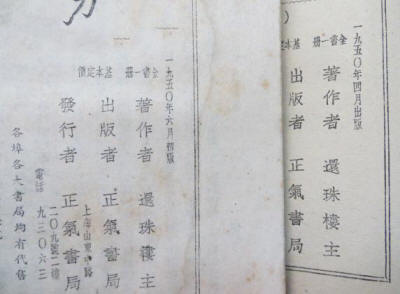 一九五〇年四月出版
全書一冊
基本定
著作者 還珠樓主
出版者 正氣書局
一九五〇年六月初版
全書一冊 基本定價
著作者 還珠樓主
出版者 正氣書局
上海山東中路
二〇九號二樓
發行者 正氣書局
電話 九三〇六三
各埠各大書局均有代售